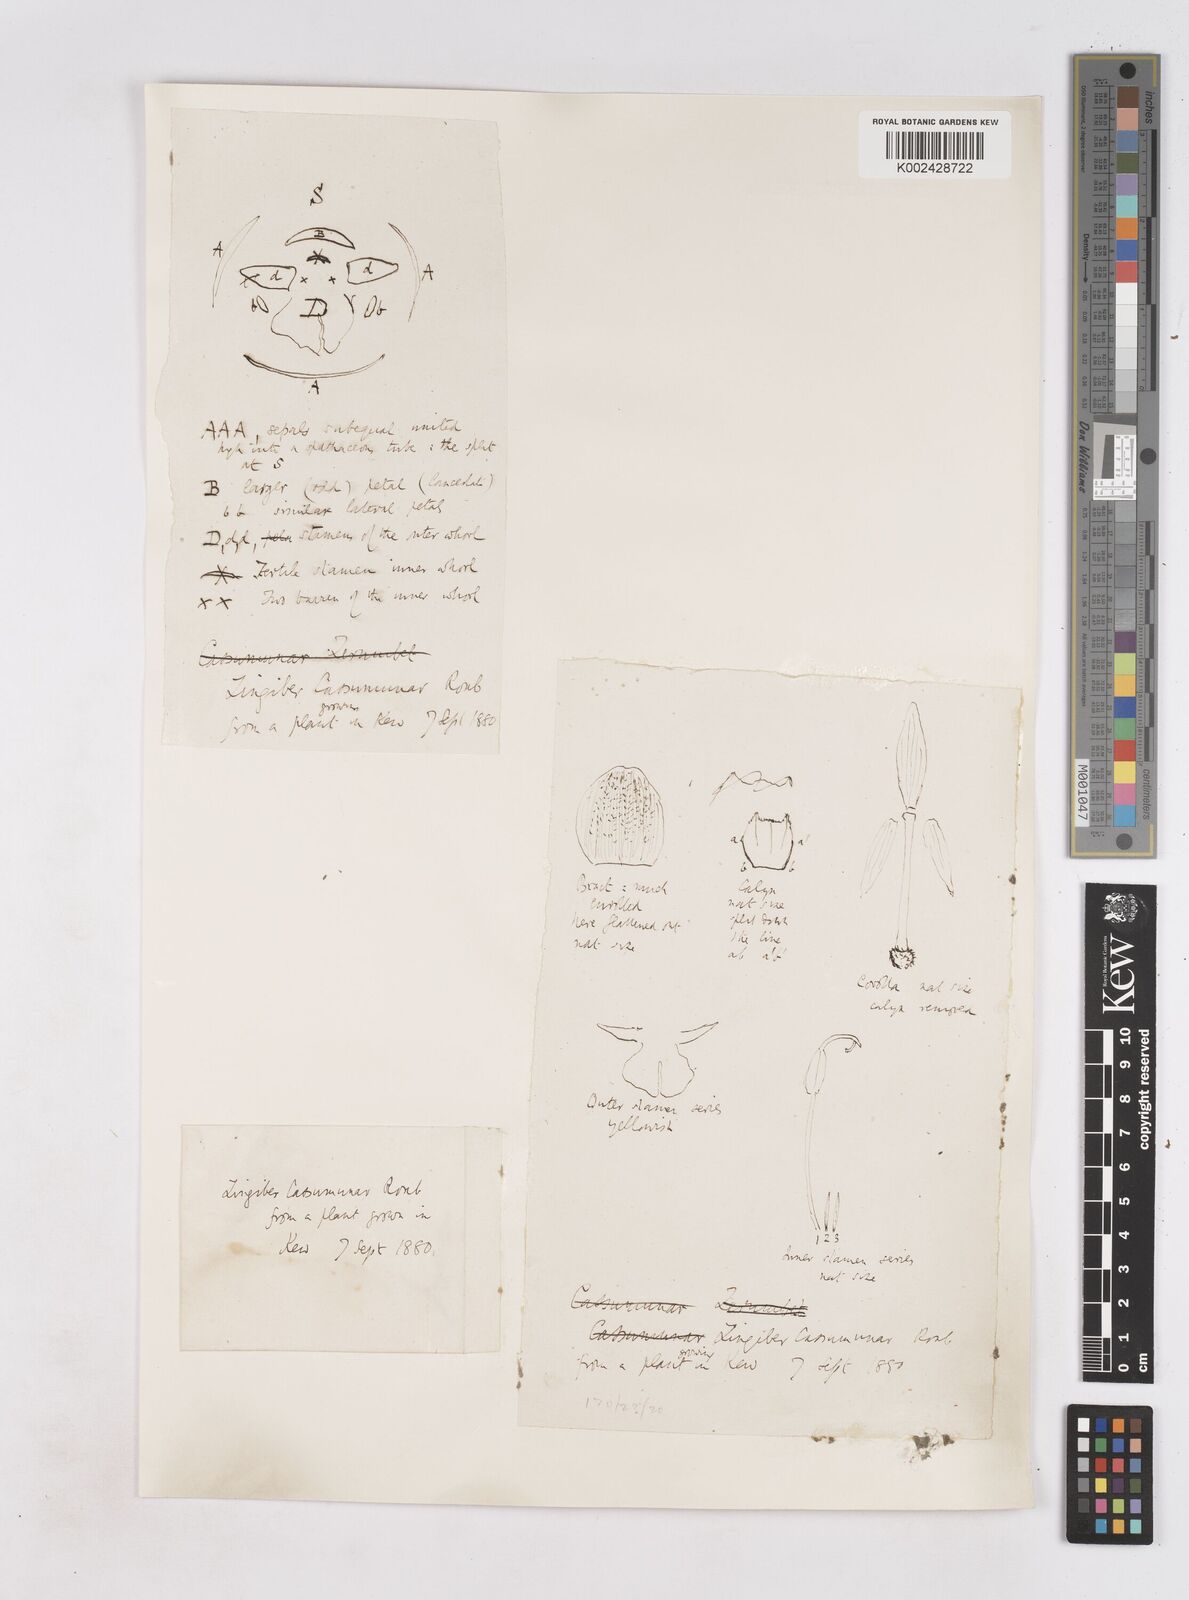 ROYAL BOTANIC GARDENS KEW
K002428722
S
A
B
A
d
d
b
D
b
A
AAA, sepals subequal united
high into a spathaceous tube : the split
at S
B larger (odd) petal (lanceolate)
b b similar lateral petals
D,d,d, stamens of the outer whorl
Fertile stamen inner whorl
x x Two barren of the inner whorl
Cassumunar Zerumbet
Zingiber Cassumunar Roxb
grown
from a plant in Kew 7 Sept 1880
Bract : much
enrolled
here flattened out
nat size
a a'
b b'
Calyx
nat size
split down
the line
ab a'b'
Corolla nat size
calyx removed
Outer stamen series
yellowish
1 2 3
Inner stamen series
nat size
Cassumunar Zerumbet
Cassumunar Zingiber Cassumunar Roxb
growing
from a plant in Kew 7 Sept 1880
Zingiber Cassumunar Roxb
from a plant grown in
Kew 7 Sept 1880.
inches
centimeters
Density
Don Williams
M001047
Royal Botanic Gardens
Kew
0 1 2 3 4 5 6 7 8 9 10
cm
copyright reserved